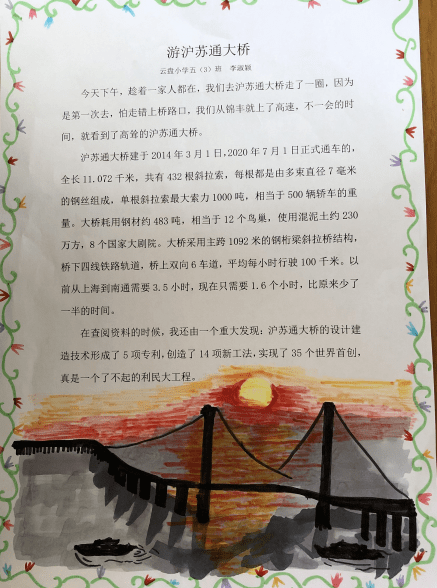 游沪苏通大桥
云盘小学五（3）班 李淑颖
今天下午，趁着一家人都在，我们去沪苏通大桥走了一圈，因为
是第一次去，怕走错上桥路口，我们从锦丰就上了高速，不一会的时
间，就看到了高耸的沪苏通大桥。
沪苏通大桥建于 2014 年 3 月 1 日,2020 年 7 月 1 日正式通车的，
全长 11.072 千米，共有 432 根斜拉索，每根都是由多束直径 7 毫米
的钢丝组成，单根斜拉索最大索力 1000 吨，相当于 500 辆轿车的重
量。大桥耗用钢材约 483 吨，相当于 12 个鸟巢，使用混泥土约 230
万方，8 个国家大剧院。大桥采用主跨 1092 米的钢桁梁斜拉桥结构，
桥下四线铁路轨道，桥上双向 6 车道，平均每小时行驶 100 千米。以
前从上海到南通需要 3.5 小时，现在只需要 1.6 个小时，比原来少了
一半的时间。
在查阅资料的时候，我还由一个重大发现：沪苏通大桥的设计建
造技术形成了 5 项专利，创造了 14 项新工法，实现了 35 个世界首创，
真是一个了不起的利民大工程。